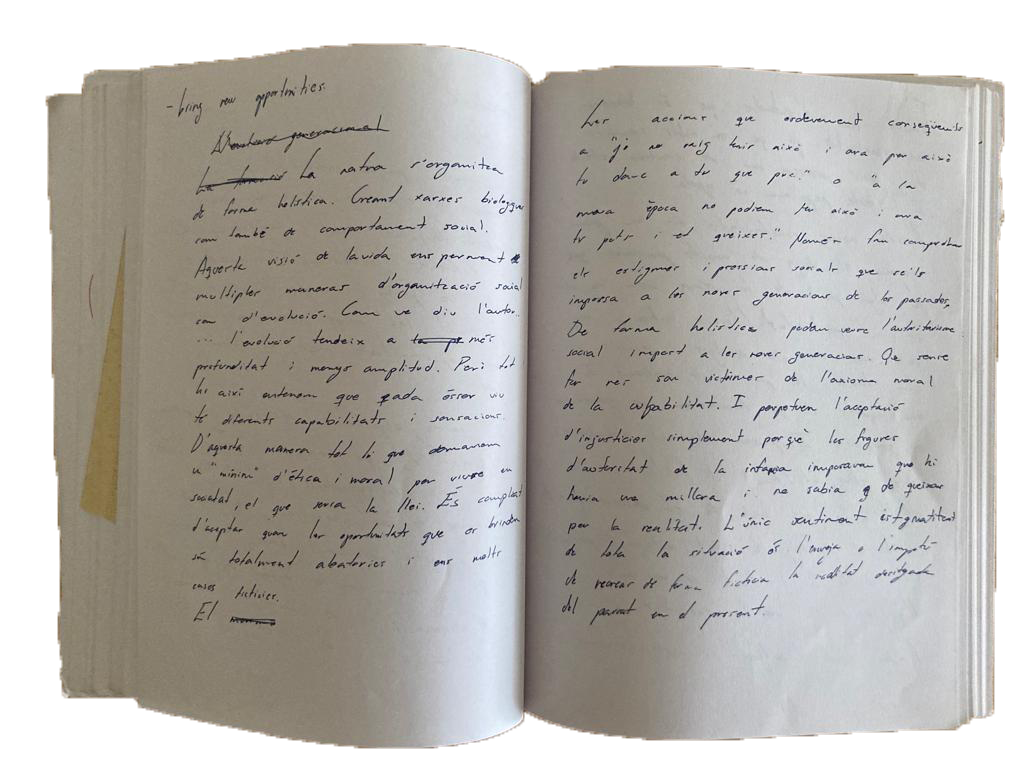 - bring new opportunities.
generacional
La La natra s'organitza
de forma holistica. Creant xarxes biologiques
com també de comportament social.
Aquesta visió de la vida ens permet
multiples maneras d'organització social
com d'evolució. Com ve diu l'autor...
... l'evolució tendeix a més
profunditat i menys amplitud. Però tot
hi així entenem que cada ésser viu
té diferents capabilitats i sensacions.
D'aquesta manera tot lo que demanam
u "minim" d'ética i moral per viure en
societat, el que seria la llei. És complicat
d'aceptar quan les oportunitats que es brinden
són totalment abatories i ens molts
casos ficticies.
El
Les accions que esdevenent conseqüents
a "jo no vaig tenir això i ara per això
tu dono a tu que puc." o "a la
meva época no podiem fer això i ara
tu pots i et queixes." Només fan comprobar
els estigmes i pressions socials que se'ls
imposa a les noves generacions de les passades,
De forma holistica podem veure l'autoritarisme
social impost a les noves generacions. Que sense
fer res son victimes de l'axioma moral
de la culpabilitat. I perpetuen l'aceptació
d'injusticies simplement perquè les figures
d'autoritat de la infancia imposavan que hi
havia una millora i no sabia de queixar
per la realitat. L'únic sentiment estgmatitzat
de tota la situació és l'enveja o l'impotè
de recrear de forma ficticia la realitat desitjada
del passat en el present.